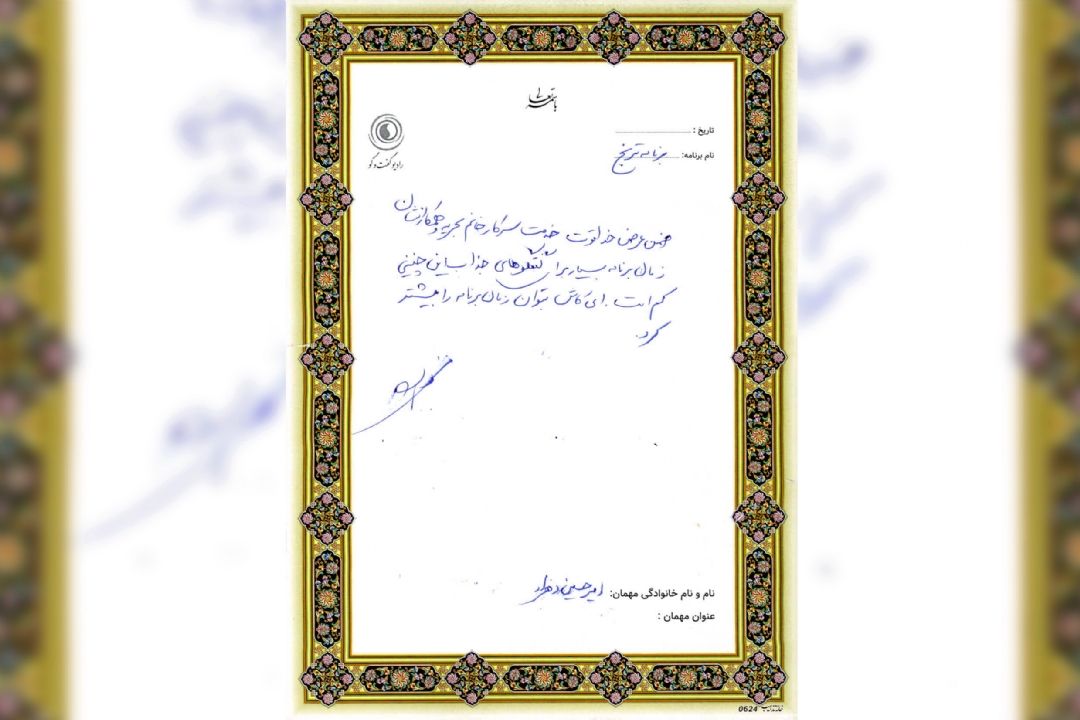 باسمه تعالی
تاریخ :
نام برنامه: برنامه ترنج
رادیو گفت و گو
ضمن عرض خدا قوت خدمت سرکار خانم بحریه و همکارانشان
زمان برنامه بسیار برای گفتگوهای جذاب این چنینی
کم است. ای کاش بتوان زمان برنامه را بیشتر
کرد.
نام و نام خانوادگی مهمان: امیرحسین
عنوان مهمان :
0624